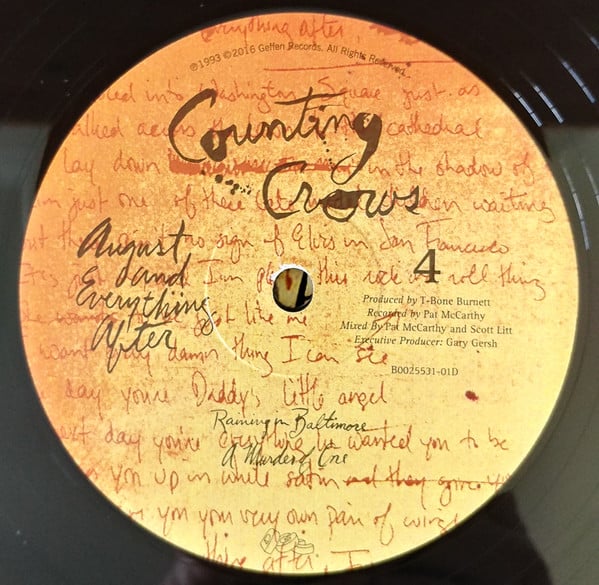 everything after
℗1993 ©2016 Geffen Records. All Rights Reserved.
into Washington Square just as
walked across the cathedral
lay down in the shadow of
just one of these late when waiting
sign of Elvis in San Francisco
I'm this rock n roll thing
like me
want every damn thing I can see
day you're Daddy's little angel
next day you're everything he wanted you to be
you up in white satin and they give you
you your very own pair of wings
Counting
Crows
August
and
Everything
After
4
Produced by T-Bone Burnett
Recorded by Pat McCarthy
Mixed By Pat McCarthy and Scott Litt
Executive Producer: Gary Gersh
B0025531-01D
Raining in Baltimore
A Murder of One